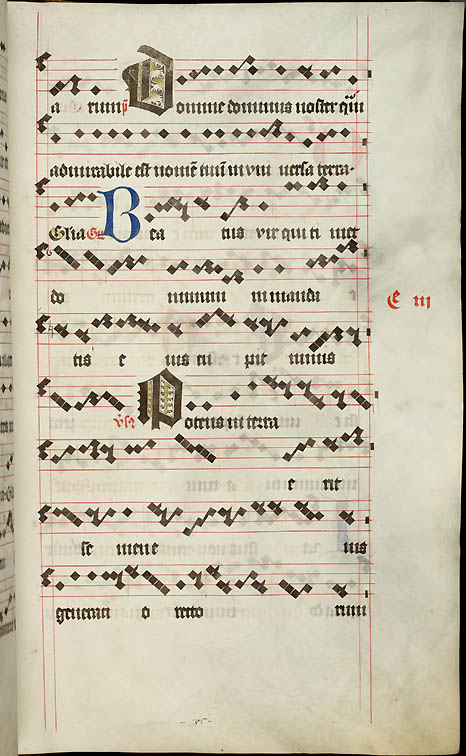 a rum p̄ Domine dominus noster quā
admirabile est nomē tuū in uni uersa terra.
Glīa Gͬ Bea tus vir qui ti met
do minum in manda
tis e ius cu pit nimis
v̄sꝰ Potens in terra
e rit
se men e ius
generati o recto rum
C iij